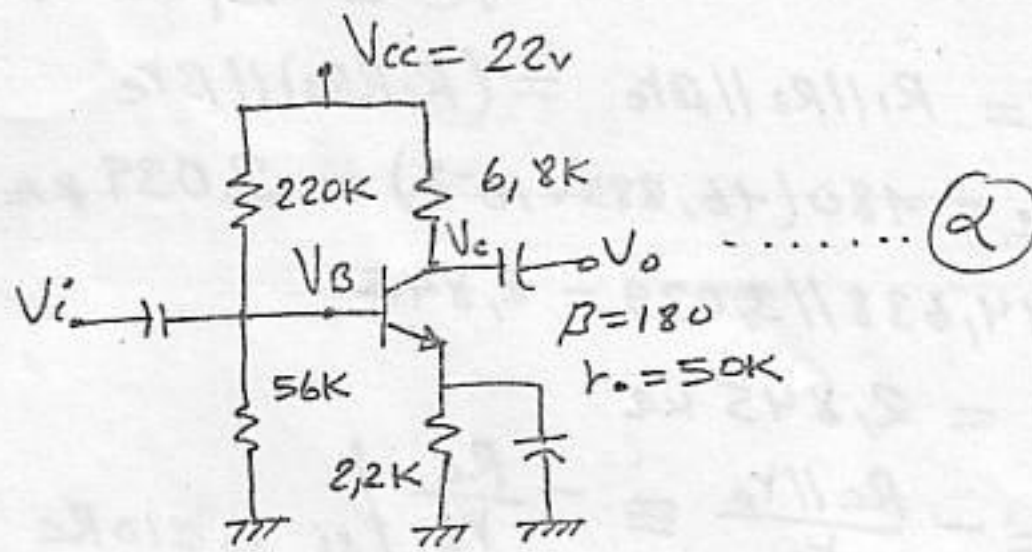 Vcc = 22v
220K
6,8K
Vc
Vo
........ α
VB
Vi
β=180
ro=50K
56K
2,2K